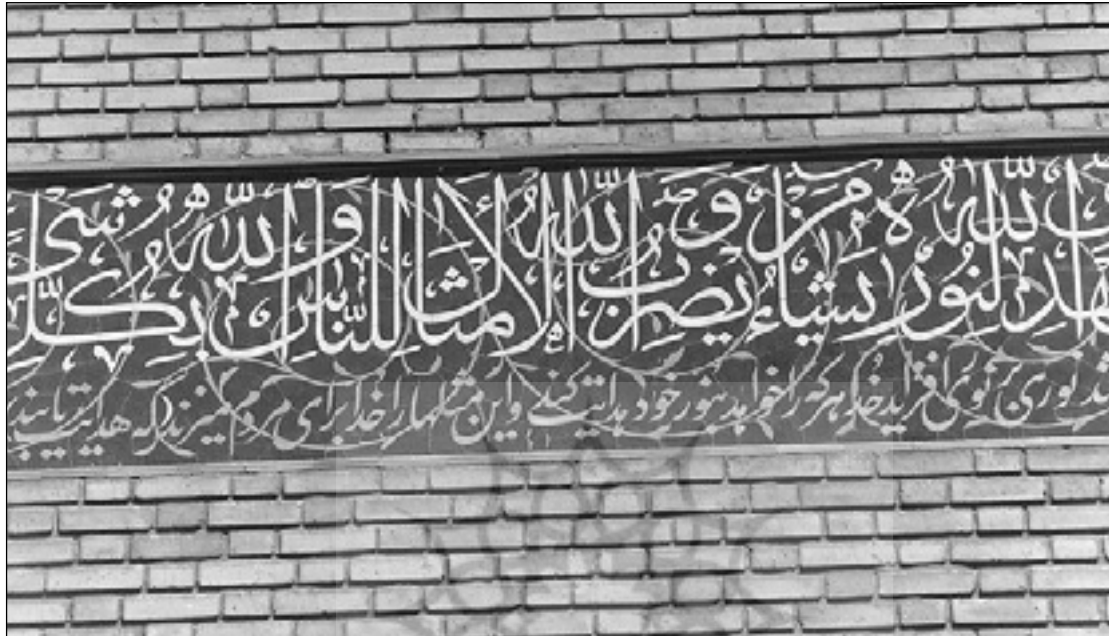 يَهْدِي اللَّهُ لِنُورِهِ مَنْ يَشَاءُ وَيَضْرِبُ اللَّهُ الْأَمْثَالَ لِلنَّاسِ وَاللَّهُ بِكُلِّ شَيْءٍ
نوری بر نوری افزاید خدا هرکه را خواهد بنور خود هدایت کند و این مثلها را خدا برای مردم میزند که هدایت یابند